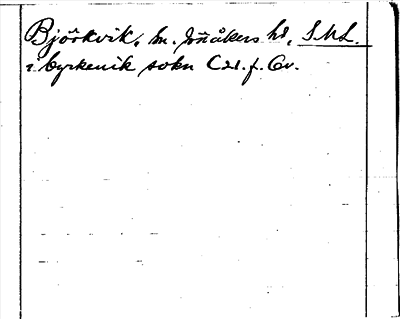 Björkvik, sn. Jönåkers hd, SML.
i byrkeuik sokn C21. f. Cv.